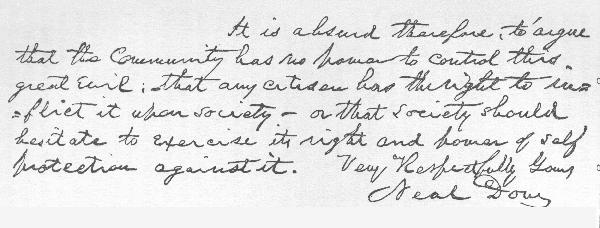 It is absurd therefore, to argue
that the Community has no power to control this
great Evil; that any citizen has the right to in=
=flict it upon society – or that society should
hesitate to exercise its right and power of self
protection against it. Very Respectfully Yours
Neal Dow